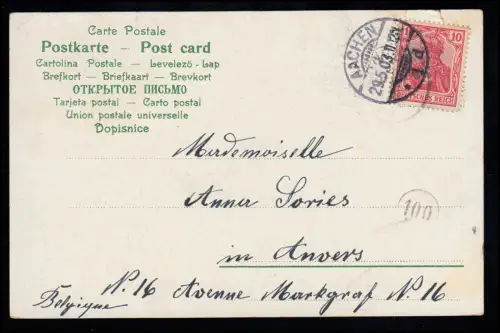 Carte Postale
Postkarte – Post card
Cartolina Postale – Levelező-Lap
Brefkort – Briefkaart – Brevkort
ОТКРЫТОЕ ПИСЬМО
Tarjeta postal – Carto postal
Union postale universelle
Dopisnice
AACHEN
29.5.03
1 d
10
DEUTSCHES REICH
Mademoiselle
Anna Sories
100
in Anvers
N. 16 Avenue Markgraf N. 16
Belgique